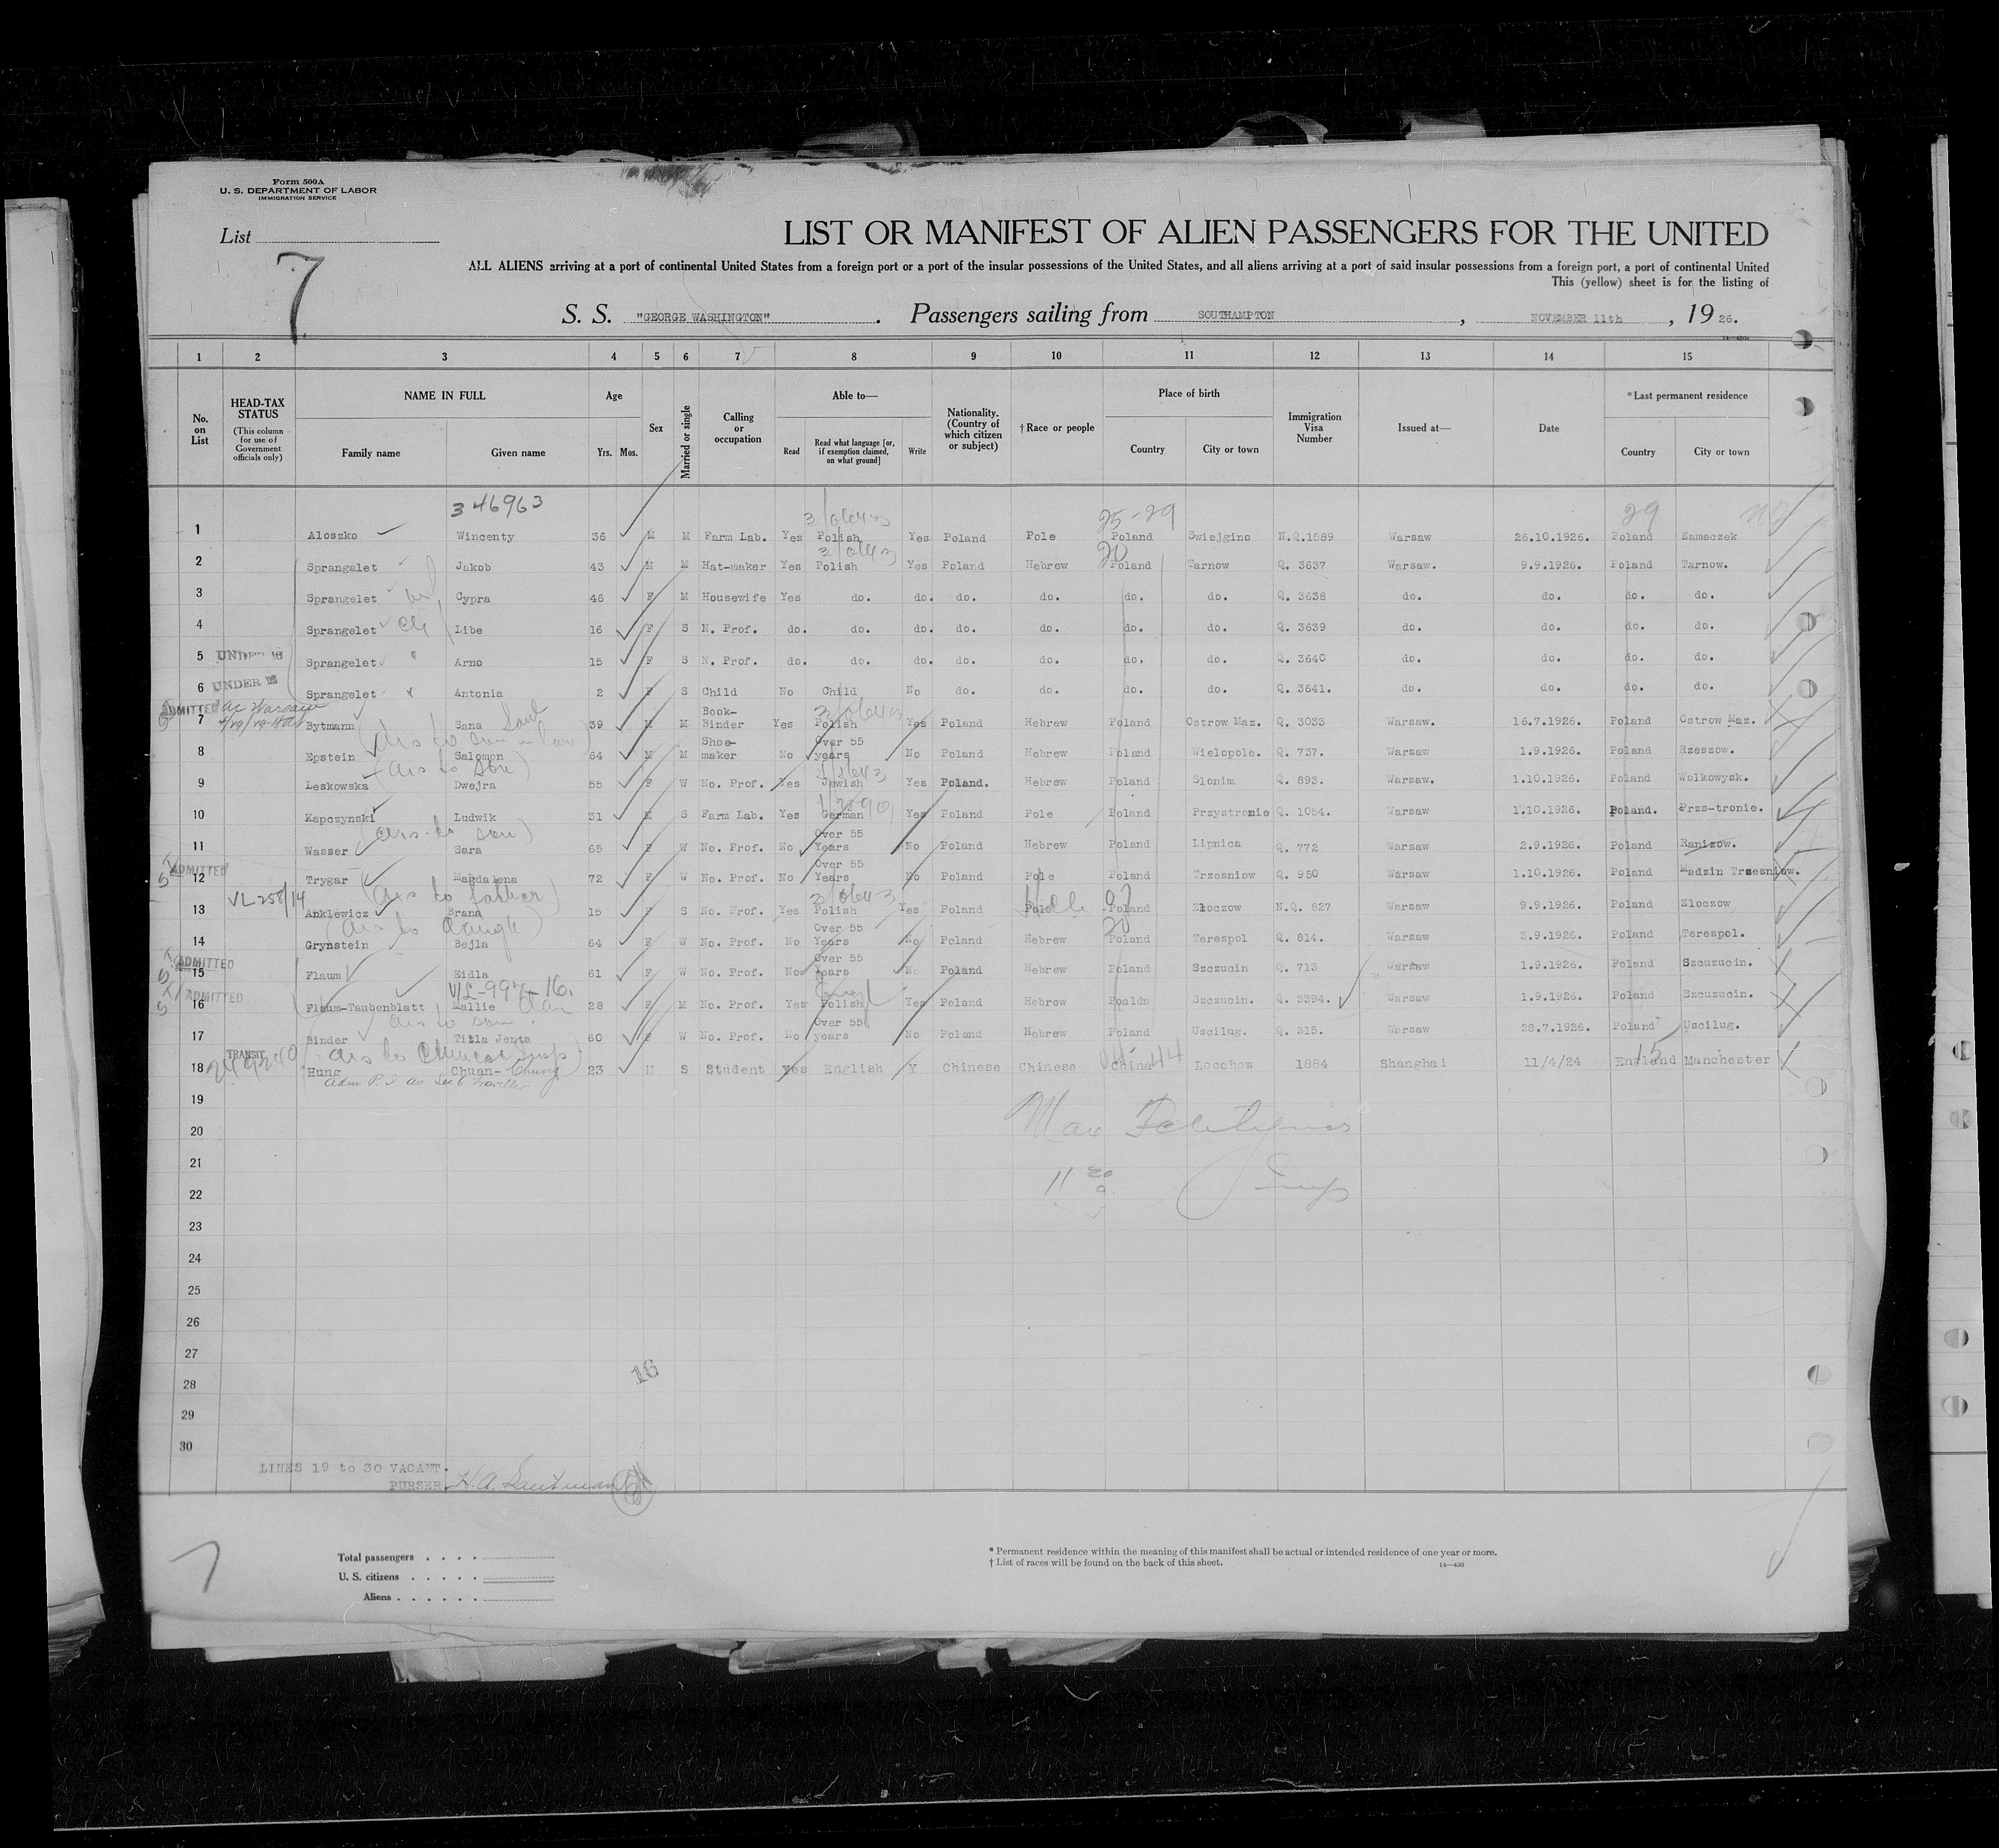 Form 500A
U. S. DEPARTMENT OF LABOR
IMMIGRATION SERVICE
List
7
LIST OR MANIFEST OF ALIEN PASSENGERS FOR THE UNITED
ALL ALIENS arriving at a port of continental United States from a foreign port or a port of the insular possessions of the United States, and all aliens arriving at a port of said insular possessions from a foreign port, a port of continental United
This (yellow) sheet is for the listing of
S. S. "GEORGE WASHINGTON". Passengers sailing from SOUTHAMPTON, NOVEMBER 11th, 19 26.
1 2 3 4 5 6 7 8 9 10 11 12 13 14 15
No. on List
HEAD-TAX STATUS (This column for use of Government officials only)
NAME IN FULL Family name Given name
Age Yrs. Mos.
Sex
Married or single
Calling or occupation
Able to— Read Read what language [or, if exemption claimed, on what ground] Write
Nationality. (Country of which citizen or subject)
†Race or people
Place of birth Country City or town
Immigration Visa Number
Issued at—
Date
*Last permanent residence Country City or town
346963 25-29 29
1 Aloszko Wincenty 36 M M Farm Lab. Yes Polish Yes Poland Pole Poland Swiejgino N.Q.1589 Warsaw 26.10.1926. Poland Zameczek
2 Sprangalet Jakob 43 M M Hat-maker Yes Polish Yes Poland Hebrew Poland Tarnow Q. 3637 Warsaw. 9.9.1926. Poland Tarnow.
3 Sprangelet Cypra 46 F M Housewife Yes do. do. do. do. do. do. Q. 3638 do. do. do. do.
4 Sprangelet Libe 16 F S N. Prof. do. do. do. do. do. do. do. Q. 3639 do. do. do. do.
5 UNDER 16 Sprangelet Arno 15 F S N. Prof. do. do. do. do. do. do. do. Q. 3640 do. do. do. do.
6 UNDER 16 Sprangelet Antonia 2 F S Child No Child No do. do. do. do. Q. 3641. do. do. do. do.
ADMITTED
7 Bytmann Sana 39 M M Book-Binder Yes Polish Yes Poland Hebrew Poland Ostrow Maz. Q. 3033 Warsaw. 16.7.1926. Poland Ostrow Maz.
8 Epstein Salomon 64 M M Shoe-maker No Over 55 years No Poland Hebrew Poland Wielopole. Q. 737. Warsaw 1.9.1926. Poland Rzeszow.
9 Leskowska Dwejra 55 F W No. Prof. Yes Jewish Yes Poland. Hebrew Poland Slonim Q. 893. Warsaw. 1.10.1926. Poland Wolkowysk.
10 Kapczynski Ludwik 31 M S Farm Lab. Yes German Yes Poland Pole Poland Przystronie Q. 1054. Warsaw 1.10.1926. Poland. Przs-tronie.
11 Wasser Sara 65 F W No. Prof. No Over 55 Years No Poland Hebrew Poland Lipnica Q. 772 Warsaw 2.9.1926. Poland Ranizow.
ADMITTED
12 Trygar Magdalena 72 F W No. Prof. No Over 55 Years No Poland Pole Poland Trzesniow Q. 950 Warsaw 1.10.1926. Poland Madzin Trzesniow.
13 Anklewicz Brana 15 F S No. Prof. Yes Polish Yes Poland Pole Poland Zloczow N.Q. 827 Warsaw 9.9.1926. Poland Zloczow
14 Grynstein Bejla 64 F W No. Prof. No Over 55 Years No Poland Hebrew Poland Terespol Q. 814. Warsaw 3.9.1926. Poland Terespol.
ADMITTED
15 Flaum Eidla 61 F W No. Prof. No Over 55 Years No Poland Hebrew Poland Szczucin Q. 713 Warsaw 1.9.1926. Poland Szcuzucin.
ADMITTED
16 Flaum-Taubenblatt Mallie 28 F M No. Prof. Yes Polish Yes Poland Hebrew Poaldn Szczucin. Q. 3394. Warsaw 1.9.1926. Poland Szcuzucin.
17 Binder Titla Jenta 60 F W No. Prof. No Over 55 years No Poland Hebrew Poland Uscilug. Q. 315. Warsaw 28.7.1926. Poland Uscilug.
TRANSIT
18 Hung Chuan-Chung 23 M S Student Yes English Y Chinese Chinese China Loochow 1884 Shanghai 11/4/24 England Manchester
19
20
21
22
23
24
25
26
27
28
29
30
16
LINES 19 to 30 VACANT.
PURSER
7
Total passengers
U. S. citizens
Aliens
* Permanent residence within the meaning of this manifest shall be actual or intended residence of one year or more.
† List of races will be found on the back of this sheet.
14—430